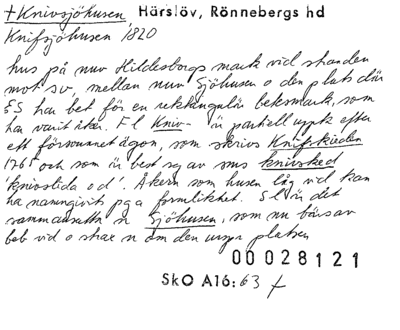 +Knivsjöhusen, Härslöv, Rönnebergs hd
Knifsjöhusen 1820
hus på nuv Hildesborgs mark vid stranden
mot sv, mellan nuv Sjöhusen o den plats där
ES har bet för en rektangulär beksmark, som
har varit åker. F l Kniv- är partiell uppk efter
ett försvunnet ägon, som skrivs Knifskieden
1761 och som är best sg av sms knivsked
'knivslida o d'. Åkern som husen låg vid kan
ha namngivit pga formlikhet. S l är det
sammansatta n Sjöhusen, som nu bärs av
beb vid o strax n om den urspr platsen
00028121
SkO A16:63